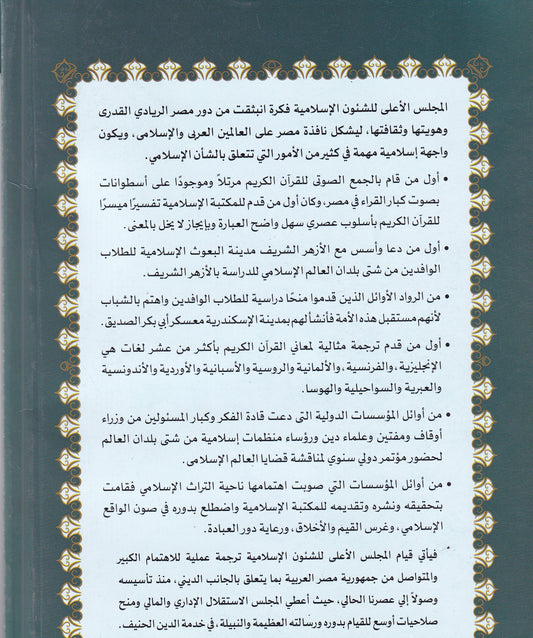 المجلس الأعلى للشئون الإسلامية فكرة انبثقت من دور مصر الريادي القدرى
وهويتها وثقافتها، ليشكل نافذة مصر على العالمين العربى والإسلامى، ويكون
واجهة إسلامية مهمة في كثير من الأمور التي تتعلق بالشأن الإسلامي.
• أول من قام بالجمع الصوتى للقرآن الكريم مرتلاً وموجودًا على أسطوانات
بصوت كبار القراء في مصر، وكان أول من قدم للمكتبة الإسلامية تفسيرًا ميسرًا
للقرآن الكريم بأسلوب عصري سهل واضح العبارة وبإيجاز لا يخل بالمعنى.
• أول من دعا وأسس مع الأزهر الشريف مدينة البعوث الإسلامية للطلاب
الوافدين من شتى بلدان العالم الإسلامي للدراسة بالأزهر الشريف.
• من الرواد الأوائل الذين قدموا منحًا دراسية للطلاب الوافدين واهتم بالشباب
لأنهم مستقبل هذه الأمة فأنشأ لهم بمدينة الإسكندرية معسكر أبي بكر الصديق.
• أول من قدم ترجمة مثالية لمعاني القرآن الكريم بأكثر من عشر لغات هي
الإنجليزية، والفرنسية، والألمانية والروسية والأسبانية والأوردية والأندونسية
والعبرية والسواحيلية والهوسا.
• من أوائل المؤسسات الدولية التى دعت قادة الفكر وكبار المسئولين من وزراء
أوقاف ومفتين وعلماء دين ورؤساء منظمات إسلامية من شتى بلدان العالم
لحضور مؤتمر دولي سنوي لمناقشة قضايا العالم الإسلامى.
• من أوائل المؤسسات التي صوبت اهتمامها ناحية التراث الإسلامي فقامت
بتحقيقه ونشره وتقديمه للمكتبة الإسلامية واضطلع بدوره في صون الواقع
الإسلامي، وغرس القيم والأخلاق، ورعاية دور العبادة.
فيأتي قيام المجلس الأعلى للشئون الإسلامية ترجمة عملية للاهتمام الكبير
والمتواصل من جمهورية مصر العربية بما يتعلق بالجانب الديني، منذ تأسيسه
وصولاً إلى عصرنا الحالي، حيث أعطي المجلس الاستقلال الإداري والمالي ومنح
صلاحيات أوسع للقيام بدوره ورسالته العظيمة والنبيلة، في خدمة الدين الحنيف.